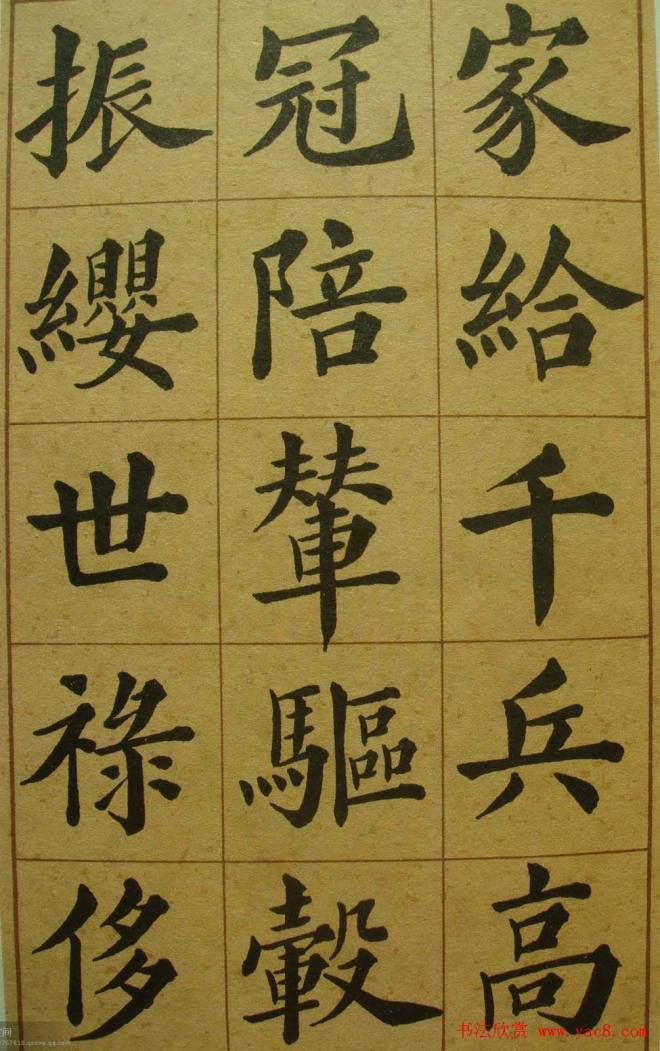 家給千兵高
冠陪輦驅轂
振纓世祿侈
书法欣赏 www.yac8.com